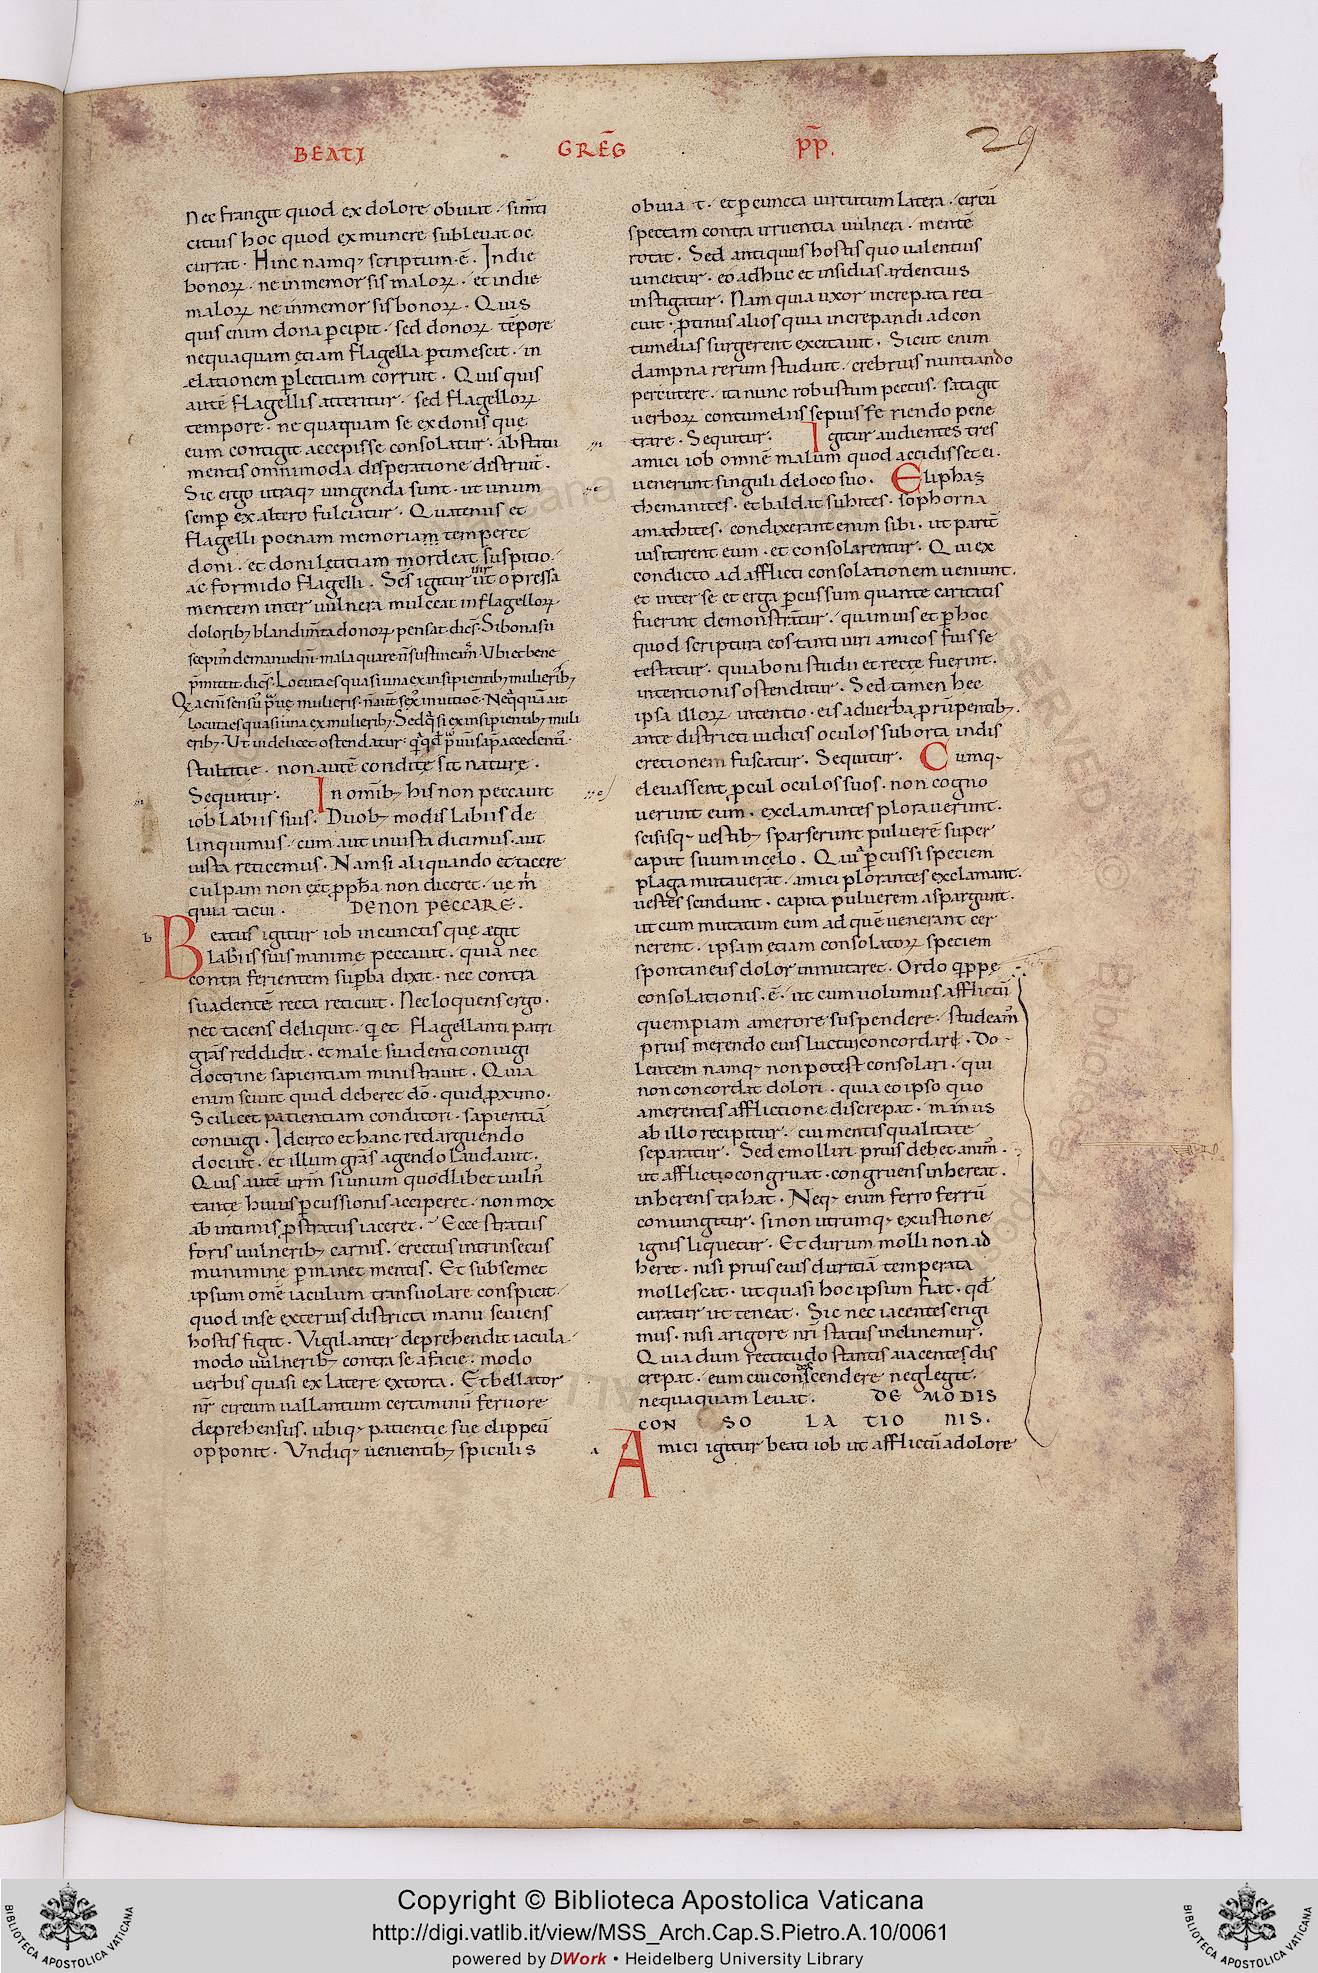 BEATI GREḠ PP̄.
29
Nec frangit quod ex dolore obviat. sum̄ti
citius hoc quod ex munere sublevat oc
currat. Hinc namq; scriptum. ē. In die
bonoꝝ. ne inmemor sis maloꝝ. et in die
maloꝝ ne inmemor sis bonoꝝ. Quis
quis enim dona ꝑcipit. sed donoꝝ tēpore
nequaquam etiam flagella ꝑtimescit. in
elationem ꝑ letitiam corruit. Quis quis
autē flagellis atteritur. sed flagelloꝝ
tempore. ne quaquam se ex donis quę
eum contigit accepisse consolatur. ab statu
mentis omnimoda disperatione distruit.
Sic ergo utraq; iungenda sunt. ut unum
semꝑ ex altero fulciatur. Quatenus et
flagelli poenam memoriam temperet
doni. et doni lętitiam mordeat suspitio.
ac formido flagelli. Scs̄ igitur vir ut opressā
mentem inter vulnera mulceat in flagelloꝝ
dolorib; blandim̄ta donoꝝ pensat dicēs. Si bona su
scepim̄ de manu dn̄i. mala quare n̄ sustineam̄. Ubi et bene
p̄mittit dicēs. Locuta es quasi una ex insipientib; mulierib;
locuta es quasi una ex mulierib;. Sed q̄si ex insipientib; muli
stultitię. non autē conditę sit naturę.
Sequitur. In om̄ib; his non peccavit
iob labiis suis. Duob; modis labiis de
linquimus. cum aut iniusta dicimus. aut
iusta reticemus. Nam si aliquando et tacere
culpam non eēt ꝓph̄a non diceret. ve m̄
quia tacui. DE NON PECCARE.
b
Beatus igitur iob in cunctis quę ęgit
labiis suis minimę peccavit. quia nec
contra ferientem suꝑba dixit. nec contra
suadentē recta reticuit. Nec loquens ergo.
nec tacens deliquit. q̄ et flagellanti patri
grās reddidit. et male suadenti coniugi
doctrine sapientiam ministravit. Quia
enim scivit quid deberet dō. quid ꝓximo.
Scilicet patientiam conditori. sapientiā
coniugi. Idcirco et hanc redarguendo
docuit. et illum grās agendo laudavit.
Quis autē urm̄ si unum quodlibet vuln̄
tantę huius ꝑcussionis acciperet. non mox
ab intimis ꝓstratus iaceret. Ecce stratus
foris vulnerib; carnis. erectus intrinsecus
munimine ꝑmanet mentis. Et sub semet
ipsum omē iaculum transvolare conspicit.
quod in se exterius districta manu seviens
hostis figit. Vigilanter deprehendit iacula.
modo vulnerib; contra se a facie. modo
verbis quasi ex latere extorta. Et bellator
nr̄ circum vallantium certaminū fervore
deprehensus. ubiq; patientie sue clippeū
opponit. Undiq; venientib; spiculis
obvia t. et ꝑ cuncta virtutum latera. circū
spectam contra irruentia vulnera. mentē
rotat. Sed antiquus hostis quo valentius
vincitur. eo adhuc et insidias ardentius
instigatur. Nam quia uxor increpata reti
cuit. ꝓtinus alios quia increpandi ad con
tumelias surgerent excitavit. Sicut enim
dampna rerum studuit. crebrius nuntiando
percutere. ita nunc robustum pectus. satagit
verboꝝ contumeliis sepius feriendo pene
trare. Sequitur. Igitur audientes tres
amici iob omnē malum quod accidisset ei.
venerunt singuli de loco suo. Eliphaz
themanites. et baldat suhites. sophorna
amathites. condixerant enim sibi. ut parit̄
visitirent eum. et consolarentur. Qui ex
condicto ad afflicti consolationem veniunt.
et inter se et erga ꝑcussum quante caritatis
fuerint demonstr̄atur. quamvis et ꝑ hoc
quod scriptura eos tanti viri amicos fuisse
testatur. quia boni studii et recte fuerint.
intentionis ostenditur. Sed tamen hec
ipsa illoꝝ intentio. eis ad verba ꝓrūpentib;.
ante districti iudicis oculos suborta indis
cretionem fuscatur. Sequitur. Cumq;
elevassent ꝓcul oculos suos. non cogno
verunt eum. exclamantes ploraverunt.
scisisq; vestib; sparserunt pulverē super
caput suum in celo. Qui ꝑcussi speciem
plaga mutaverat. amici plorantes exclamant.
vestes scindunt. capita pulverem aspargunt.
ut cum mutatum eum ad quē venerant cer
nerent. ipsam etiam consolatoꝝ speciem
spontaneus dolor inmutaret. Ordo q̄ppę
consolationis. ē. ut cum volumus afflictū
quempiam a merore suspendere. studeam̄
prius merendo eius luctui concordare. Do
lentem namq; non potest consolari. qui
non concordat dolori. quia eo ipso quo
a merentis afflictione discrepat. minus
ab illo recipitur. cui mentis qualitate
separatur. Sed emolliri prius debet anim̄.
ut afflicto congruat. congruens inhereat.
inherens trahat. Neq; enim ferro ferrū
coniungitur. si non utrumq; exustione
ignis liquetur. Et durum molli non ad
heret. nisi prius eius duritiā temperata
mollescat. ut quasi hoc ipsum fiat. qd̄
curatur ut teneat. Sic nec iacentes erigi
mus. nisi a rigore nr̄i status inclinemur.
Quia dum rectitudo stantis a iacentes dis
crepat. eum cui condescendere neglegit.
nequaquam levat. DE MODIS
CON SO LA TIO NIS.
a
Amici igitur beati iob ut afflictū a dolore
Copyright © Biblioteca Apostolica Vaticana
http://digi.vatlib.it/view/MSS_Arch.Cap.S.Pietro.A.10/0061
powered by DWork • Heidelberg University Library
BIBLIOTECA APOSTOLICA VATICANA
BIBLIOTECA APOSTOLICA VATICANA